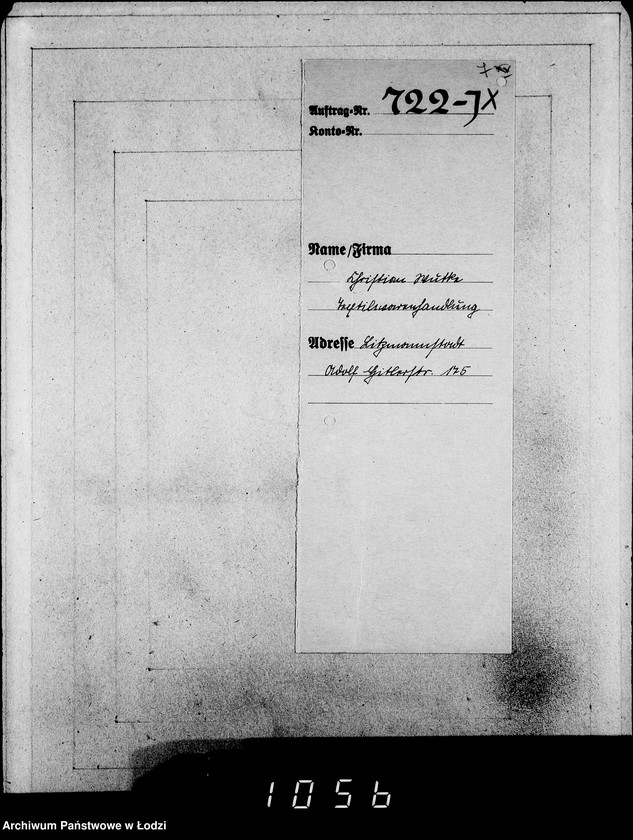 Auftrag-Nr. 722-J X
Konto-Nr.
Name/Firma
Christian Wutke
Textilwarenhandlung
Adresse Litzmannstadt
Adolf Hitlerstr. 175
1056
Archiwum Państwowe w Łodzi